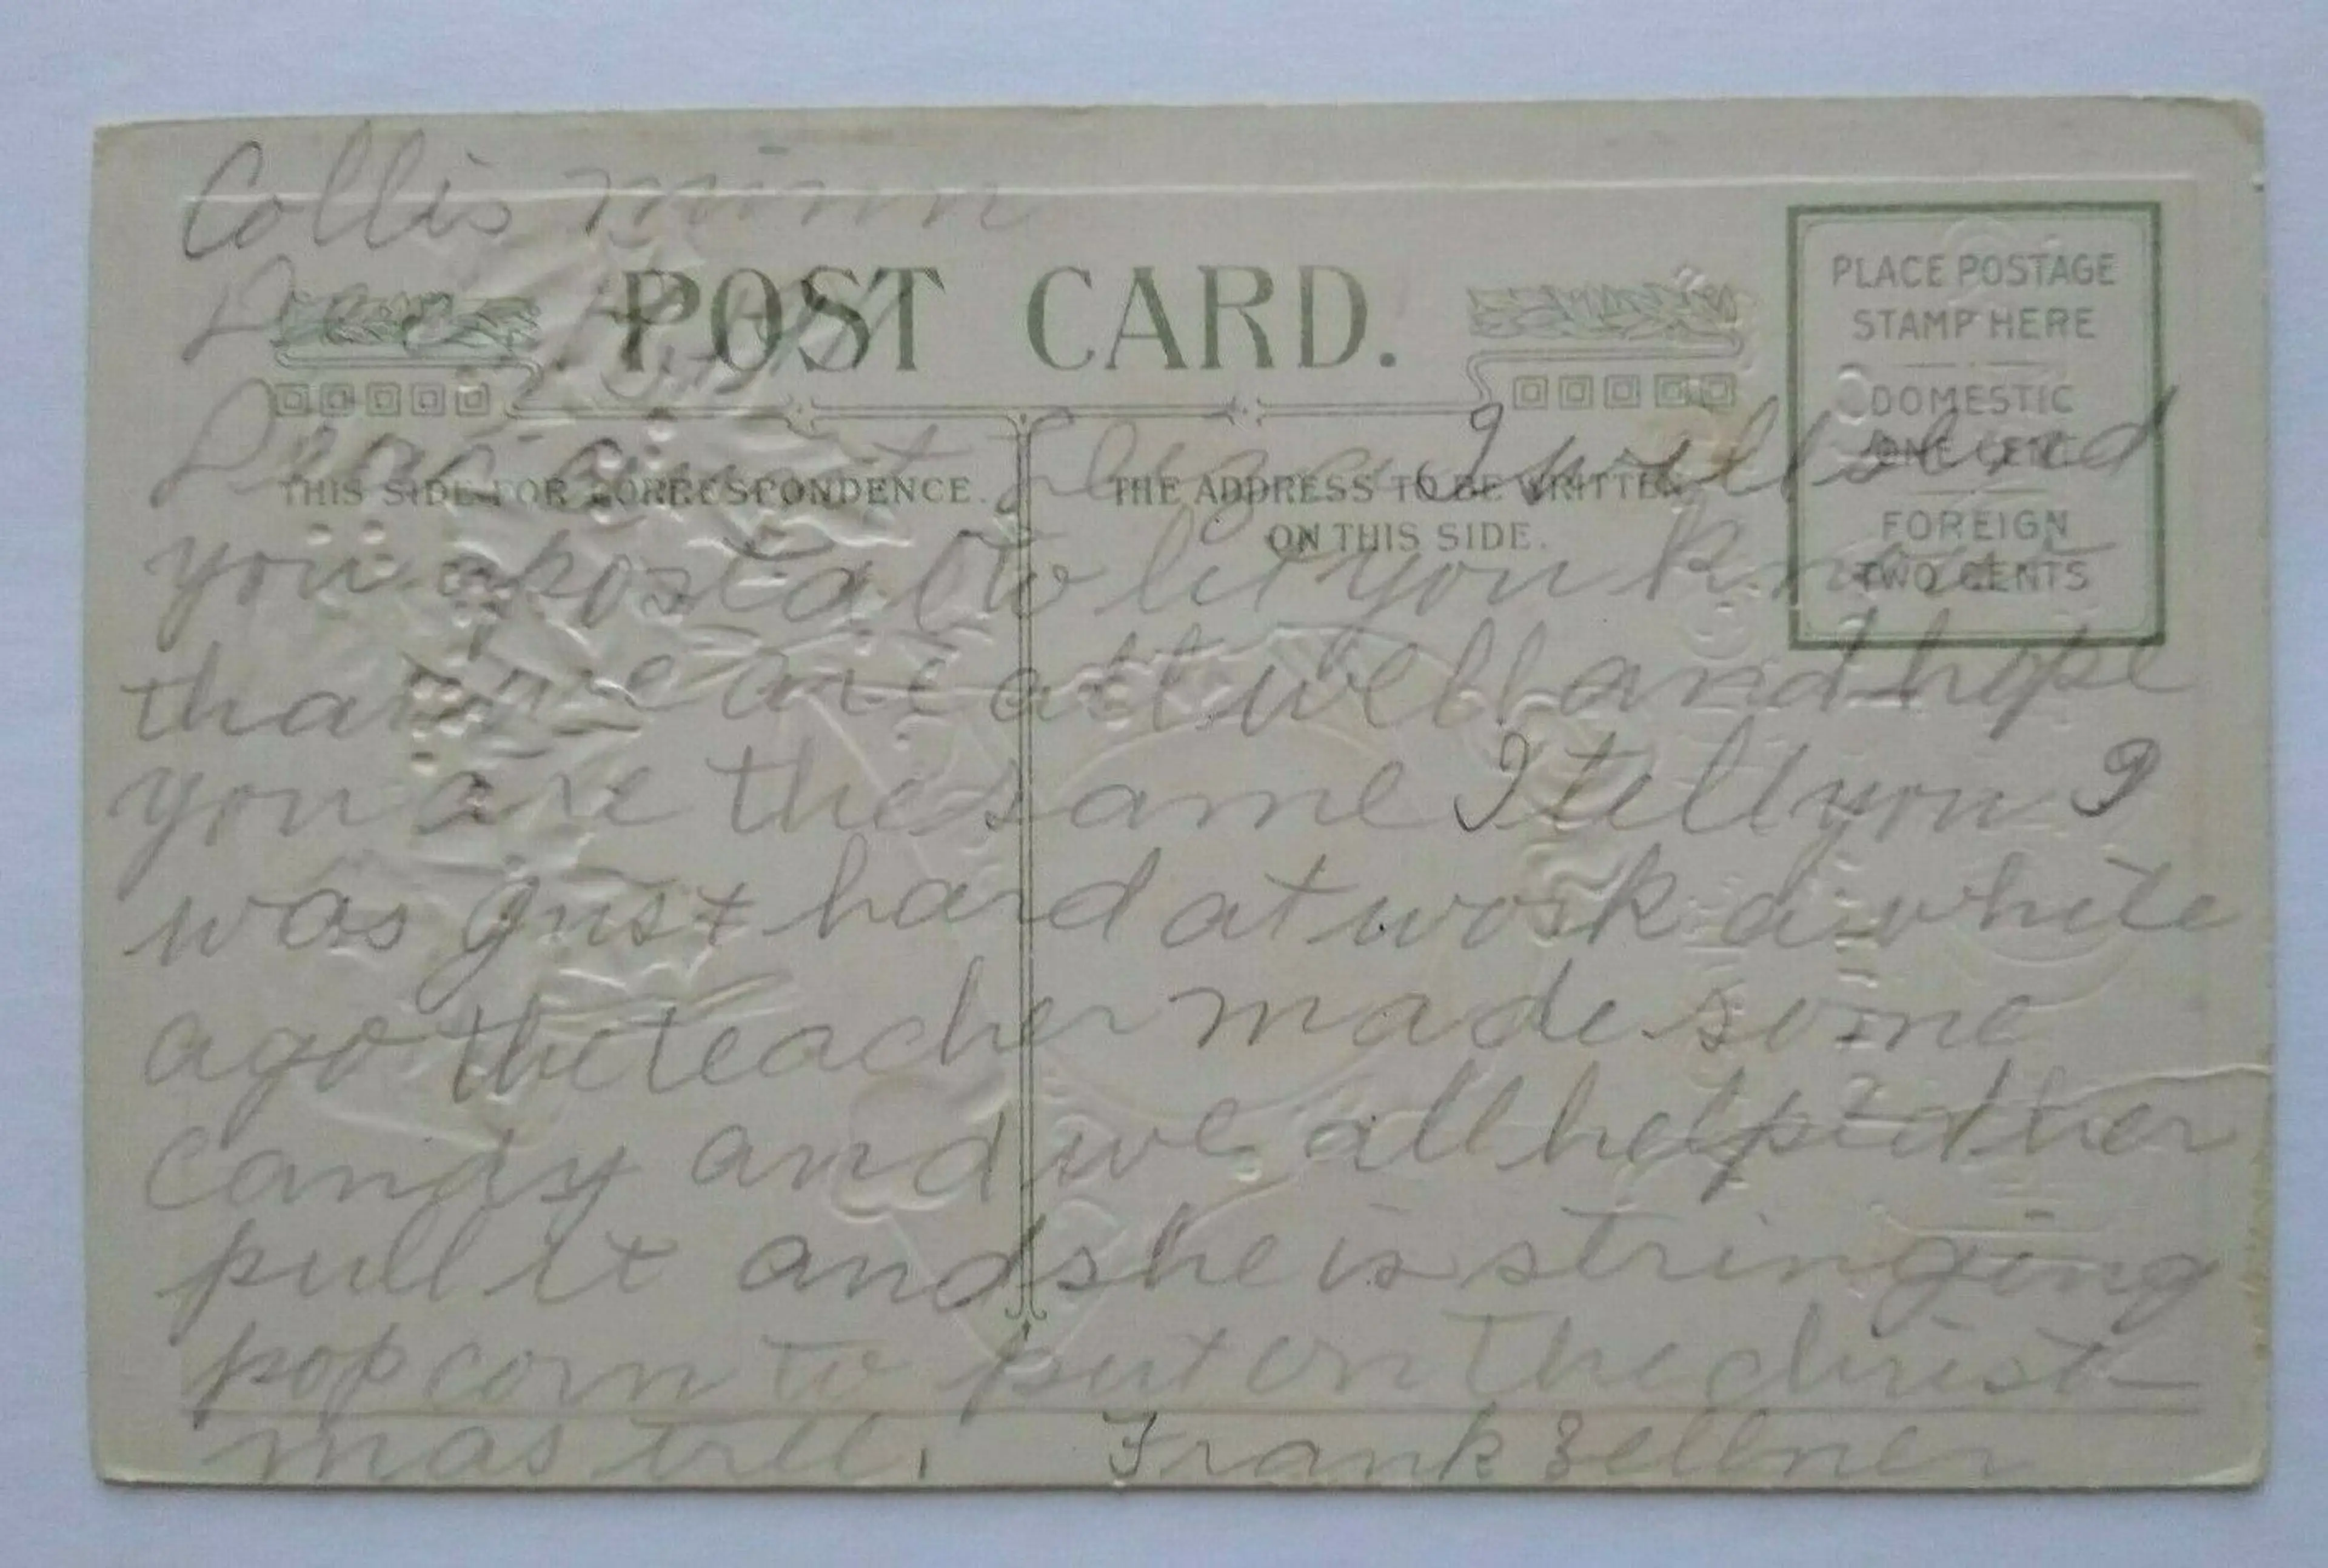 Collis Minn
Dec.
POST CARD.
PLACE POSTAGE
STAMP HERE
DOMESTIC
ONE CENT
FOREIGN
TWO CENTS
THIS SIDE FOR CORRESPONDENCE.
THE ADDRESS TO BE WRITTEN
ON THIS SIDE.
Dear aunt I will send
you a postal to let you know
that we are all well and hope
you are the same I tell you I
was just hard at work a while
ago the teacher made some
candy and we all helped her
pull it and she is stringing
popcorn to put on the christ-
mas tree. Frank Zellner